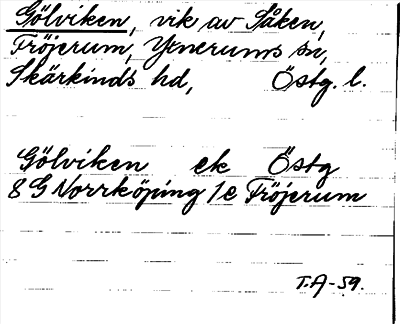 Gölviken, vik av Såken,
Fröjerum, Yxnerums sn,
Skärkinds hd, Östg. l.
Gölviken ek Östg
8 G Norrköping 1e Fröjerum
T.A-59.